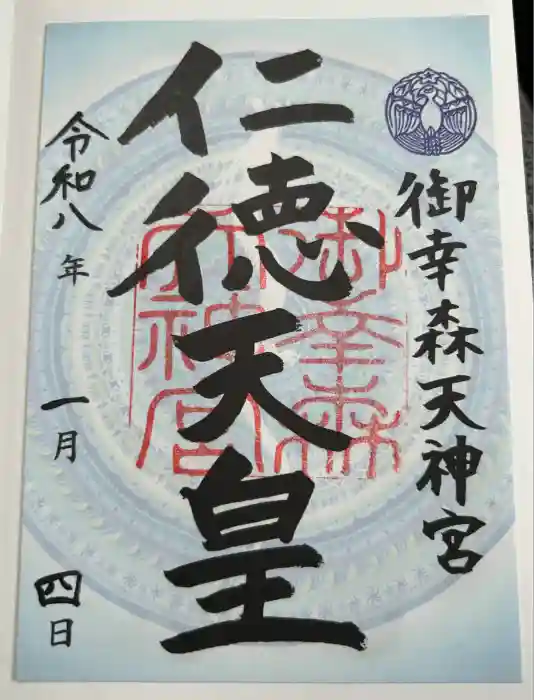 御幸森天神宮
仁徳天皇
御幸森
天神宮
令和八年一月四日